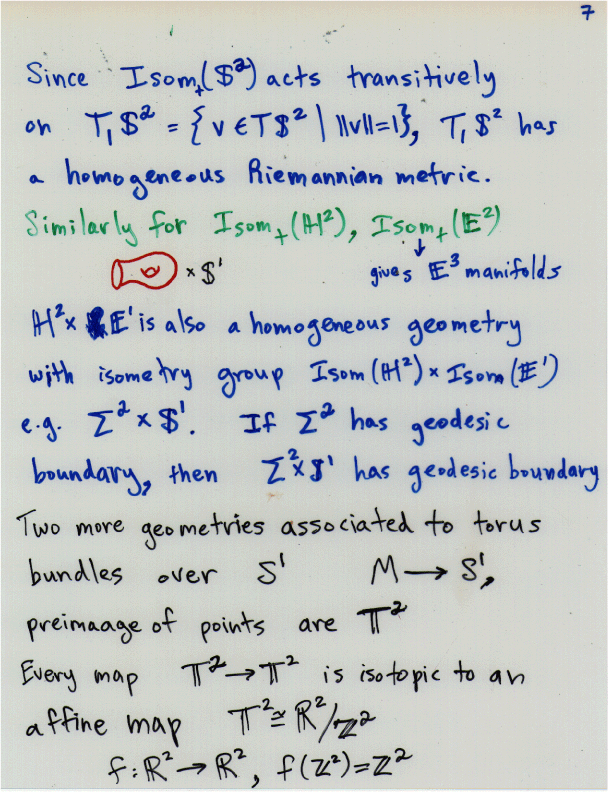 7
Since Isom₊(𝕊²) acts transitively
on T₁𝕊² = {v ∈ T𝕊² | ||v||=1}, T₁𝕊² has
a homogeneous Riemannian metric.
Similarly for Isom₊(ℍ²), Isom₊(𝔼²)
× 𝕊¹ ↓ gives 𝔼³ manifolds
ℍ² × 𝔼¹ is also a homogeneous geometry
with isometry group Isom(ℍ²) × Isom(𝔼¹)
e.g. Σ² × 𝕊¹. If Σ² has geodesic
boundary, then Σ² × 𝕊¹ has geodesic boundary
Two more geometries associated to torus
bundles over S¹ M → S¹,
preimaage of points are 𝕋²
Every map 𝕋² → 𝕋² is isotopic to an
affine map 𝕋² ≅ ℝ²/ℤ²
f: ℝ² → ℝ², f(ℤ²)=ℤ²